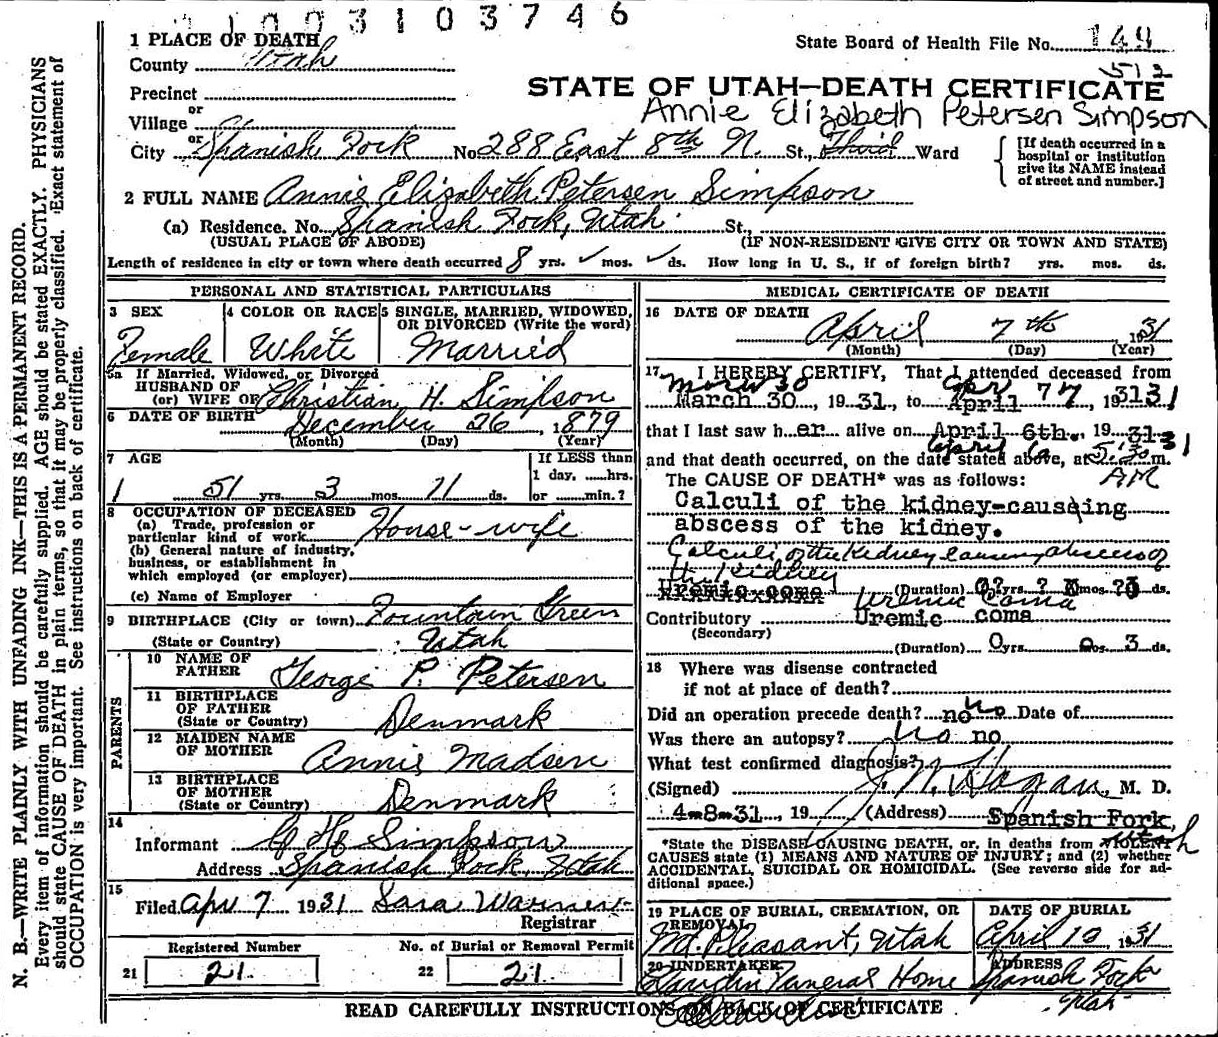 21003103746
1 PLACE OF DEATH
County Utah
State Board of Health File No. 149
512
Precinct
STATE OF UTAH—DEATH CERTIFICATE
or
Village
Annie Elizabeth Petersen Simpson
or
City Spanish Fork No 288 East 8th N. St., Third Ward
[If death occurred in a hospital or institution give its NAME instead of street and number.]
2 FULL NAME Annie Elizabeth Petersen Simpson
(a) Residence. No. Spanish Fork, Utah St.,
(USUAL PLACE OF ABODE) (IF NON-RESIDENT GIVE CITY OR TOWN AND STATE)
Length of residence in city or town where death occurred 8 yrs. ✓ mos. ✓ ds. How long in U. S., if of foreign birth? yrs. mos. ds.
PERSONAL AND STATISTICAL PARTICULARS
3 SEX
Female
4 COLOR OR RACE
White
5 SINGLE, MARRIED, WIDOWED, OR DIVORCED (Write the word)
Married
5a If Married, Widowed, or Divorced
HUSBAND OF
(or) WIFE OF Christian H. Simpson
6 DATE OF BIRTH December 26, 1879
(Month) (Day) (Year)
7 AGE
51 yrs. 3 mos. 11 ds.
If LESS than
1 day, hrs.
or min.?
8 OCCUPATION OF DECEASED
(a) Trade, profession or
particular kind of work House-wife
(b) General nature of industry,
business, or establishment in
which employed (or employer)
(c) Name of Employer
9 BIRTHPLACE (City or town) Fountain Green
(State or Country) Utah
PARENTS
10 NAME OF
FATHER George P. Petersen
11 BIRTHPLACE
OF FATHER
(State or Country) Denmark
12 MAIDEN NAME
OF MOTHER Annie Madsen
13 BIRTHPLACE
OF MOTHER
(State or Country) Denmark
14
Informant C H Simpson
Address Spanish Fork, Utah
15
Filed Apr 7 1931 Sara
Registrar
Registered Number
21 21
No. of Burial or Removal Permit
22 21
MEDICAL CERTIFICATE OF DEATH
16 DATE OF DEATH
April 7th 1931
(Month) (Day) (Year)
17 I HEREBY CERTIFY, That I attended deceased from
March 30 Apr 77
March 30, 1931, to April, 193131
that I last saw her alive on April 6th., 19 31 31
April 6
and that death occurred, on the date stated above, at 5:30 m.
AM
The CAUSE OF DEATH* was as follows:
Calculi of the kidney-causing
abscess of the kidney.
Calculi of the kidney causing abscess of
the kidney
Uremic coma (Duration) yrs. ? mos. ds.
Uremic Coma
Contributory Uremic coma
(Secondary)
(Duration) 0 yrs. mos. 3 ds.
18 Where was disease contracted
if not at place of death?
Did an operation precede death? no No Date of
Was there an autopsy? No no
What test confirmed diagnosis?
(Signed) J. W. Hagan, M. D.
4-8-31, 19 (Address) Spanish Fork,
Utah
*State the DISEASE CAUSING DEATH, or, in deaths from VIOLENT
CAUSES state (1) MEANS AND NATURE OF INJURY; and (2) whether
ACCIDENTAL, SUICIDAL OR HOMICIDAL. (See reverse side for ad-
ditional space.)
19 PLACE OF BURIAL, CREMATION, OR
REMOVAL
Mt. Pleasant, Utah
DATE OF BURIAL
April 10, 1931
20 UNDERTAKER
Funeral Home
ADDRESS
Spanish Fork
Utah
READ CAREFULLY INSTRUCTIONS ON BACK OF CERTIFICATE
N. B.—WRITE PLAINLY WITH UNFADING INK—THIS IS A PERMANENT RECORD.
Every item of information should be carefully supplied. AGE should be stated EXACTLY. PHYSICIANS
should state CAUSE OF DEATH in plain terms, so that it may be properly classified. Exact statement of
OCCUPATION is very important. See instructions on back of certificate.